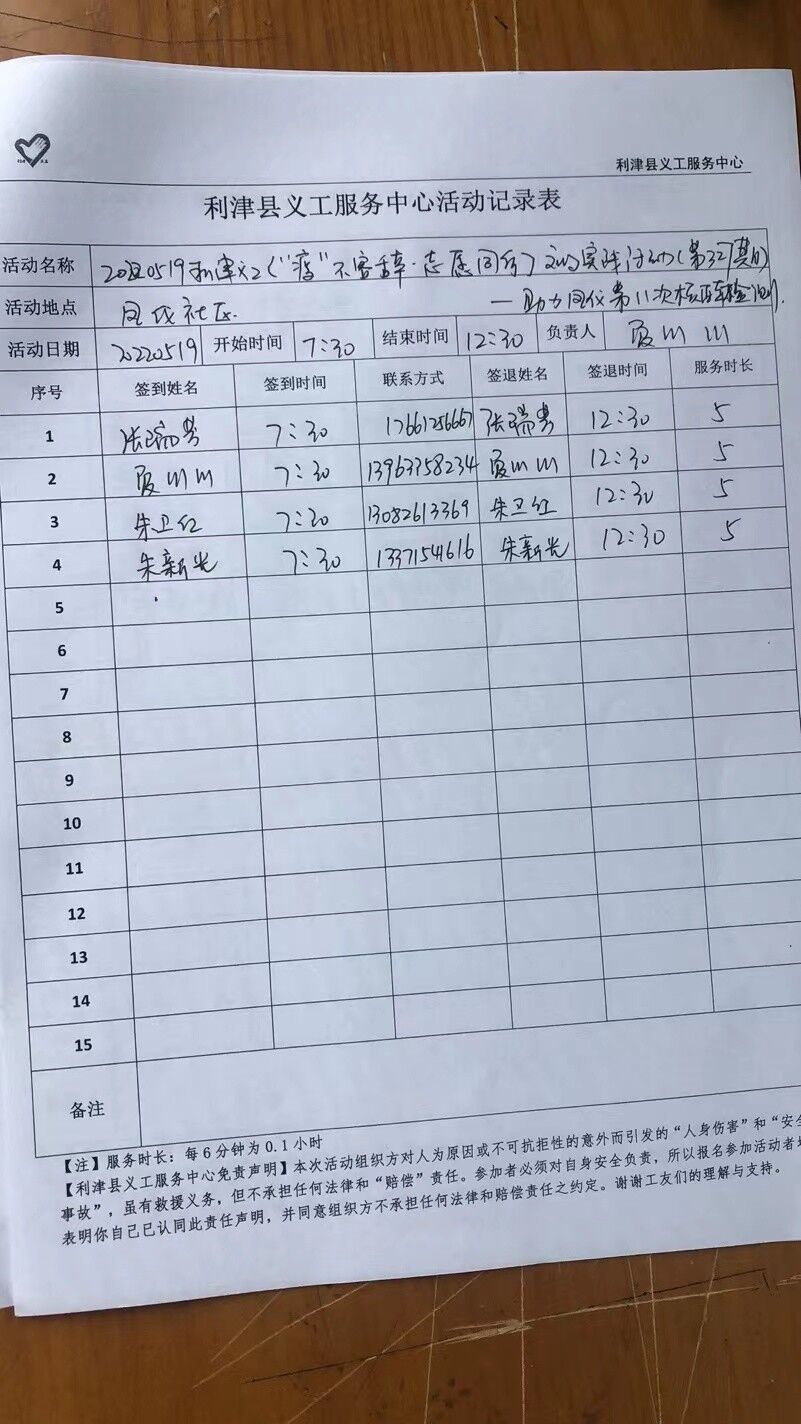 利津县义工服务中心
利津县义工服务中心活动记录表
活动名称 20220519利津义工《"疫"不容辞·志愿同行》文明实践活动(第327期)
活动地点 凤仪社区 —助力凤仪第11次核酸检测
活动日期 20220519 开始时间 7:30 结束时间 12:30 负责人
序号 签到姓名 签到时间 联系方式 签退姓名 签退时间 服务时长
1 张瑞芳 7:30 17661256667 张瑞芳 12:30 5
2 7:30 13963758234 12:30 5
3 朱卫红 7:30 13082613369 朱卫红 12:30 5
4 朱新光 7:30 13371541616 朱新光 12:30 5
5
6
7
8
9
10
11
12
13
14
15
备注
【注】服务时长：每6分钟为0.1小时
【利津县义工服务中心免责声明】本次活动组织方对人为原因或不可抗拒性的意外而引发的“人身伤害”和“安全
事故”，虽有救援义务，但不承担任何法律和“赔偿”责任。参加者必须对自身安全负责，所以报名参加活动者
表明你自己已认同此责任声明，并同意组织方不承担任何法律和赔偿责任之约定。谢谢工友们的理解与支持。